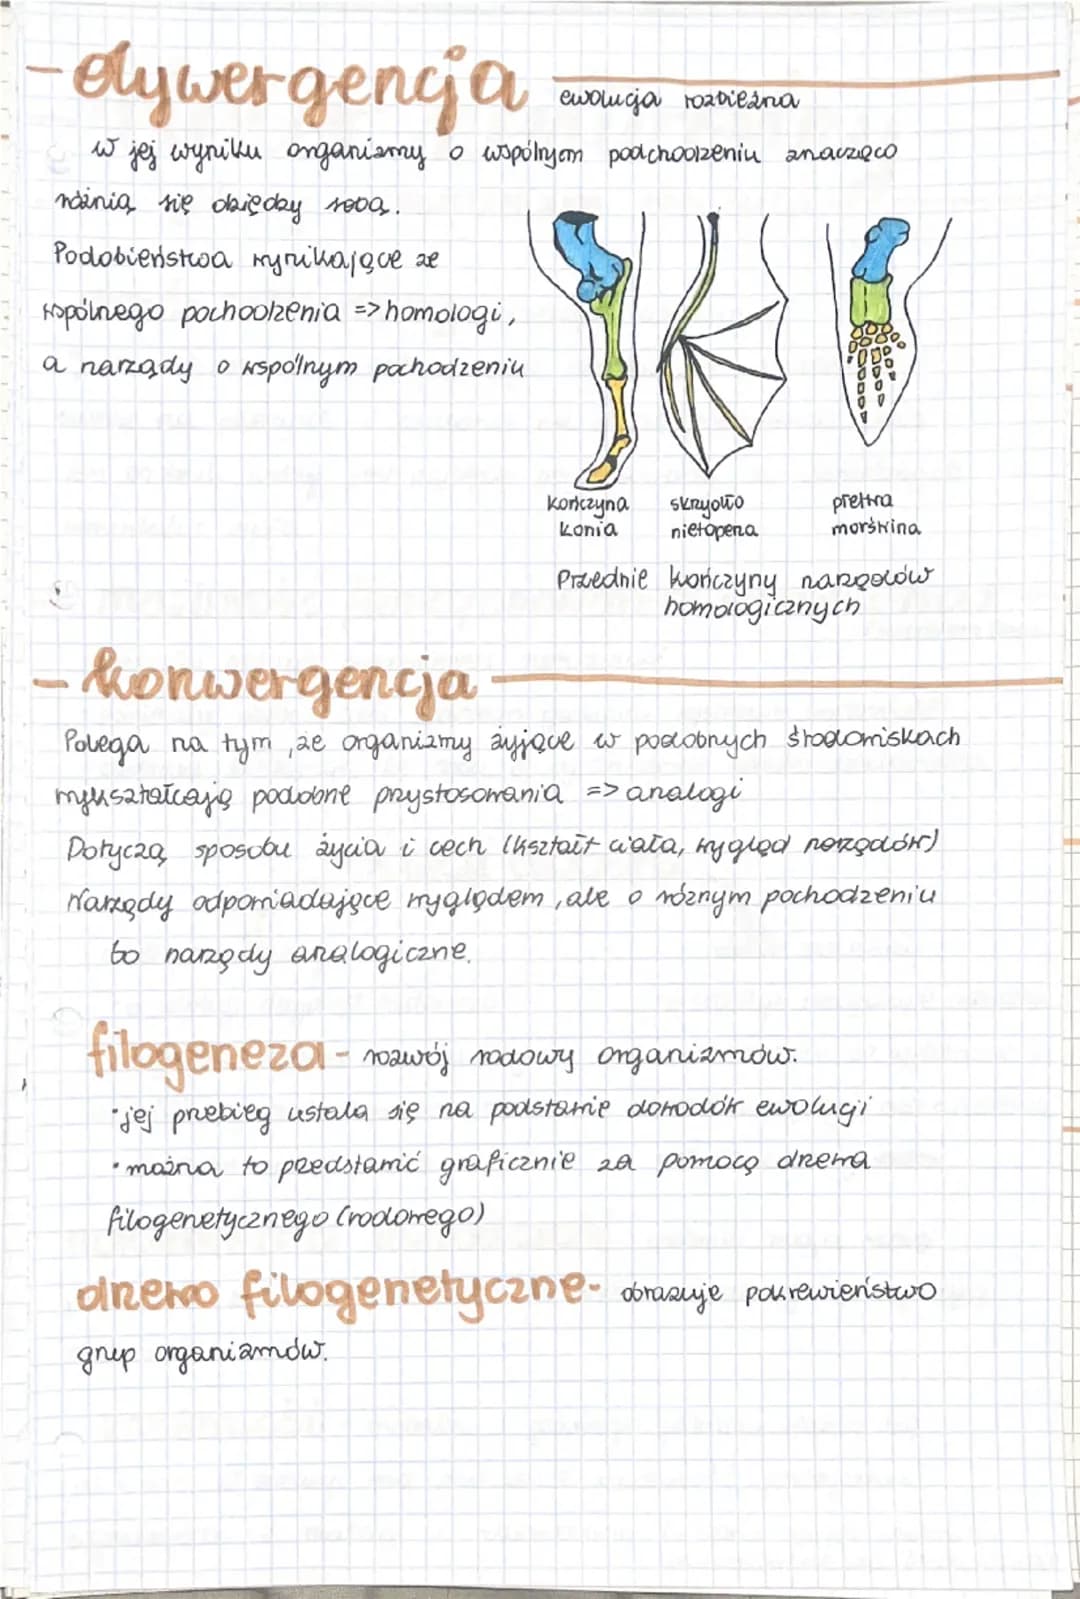 - dywergencja ewolucja rozbieżna
w jej wyniku organizmy o wspólnym podchodzeniu znacząco
różnią się dziędzy sobą.
Podobieństwa wynikające ze
wspólnego pochodzenia => homologi,
a narządy o wspólnym pochodzeniu
kończyna konia
skrzydło nietoperza
płetwa morświna
Przednie kończyny narządów
homologicznych
- konwergencja
Polega na tym, że organizmy żyjące w podobnych środowiskach
wykształcają podobne przystosowania => analogi
Dotyczą sposobu życia i cech (kształt ciała, wygląd narządów)
Narządy odpowiadające wyglądem, ale o różnym pochodzeniu
to narządy analogiczne.
filogeneza - rozwój rodowy organizmów.
• jej przebieg ustala się na podstawie dowodów ewolucji
• można to przedstawić graficznie za pomocą drzewa
filogenetycznego (rodowego)
drzewo filogenetyczne - obrazuje pokrewieństwo
grup organizmów.